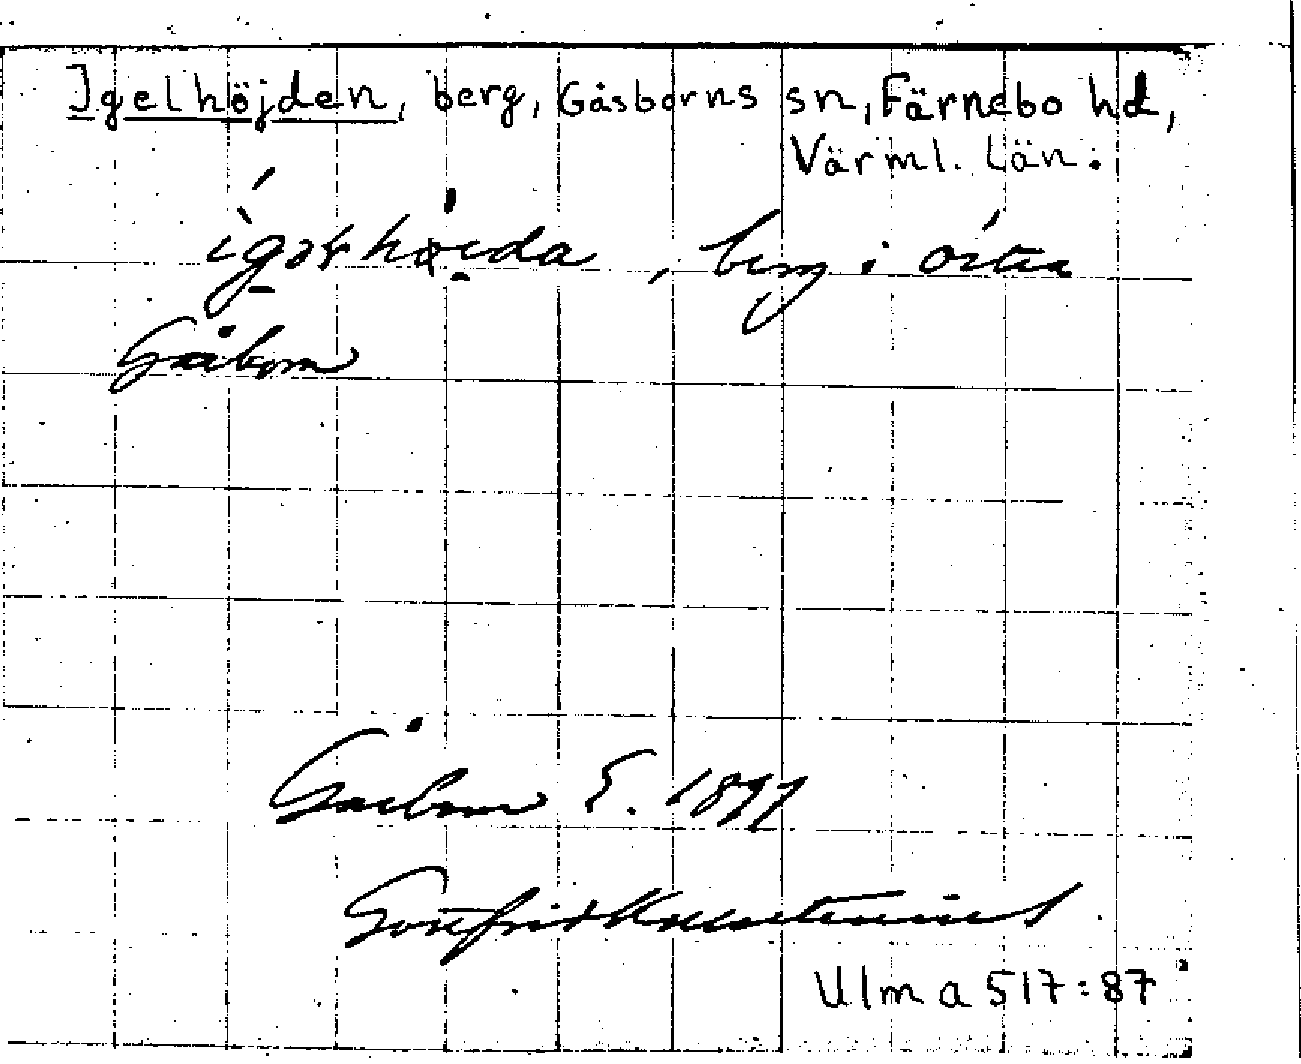 Igelhöjden, berg, Gåsborns sn, Färnebo hd,
Värml. Län.
, berg i östra
Gåsborn
Gåsborn S. 1897
Gottfrid Kallstenius
Ulma 517:87